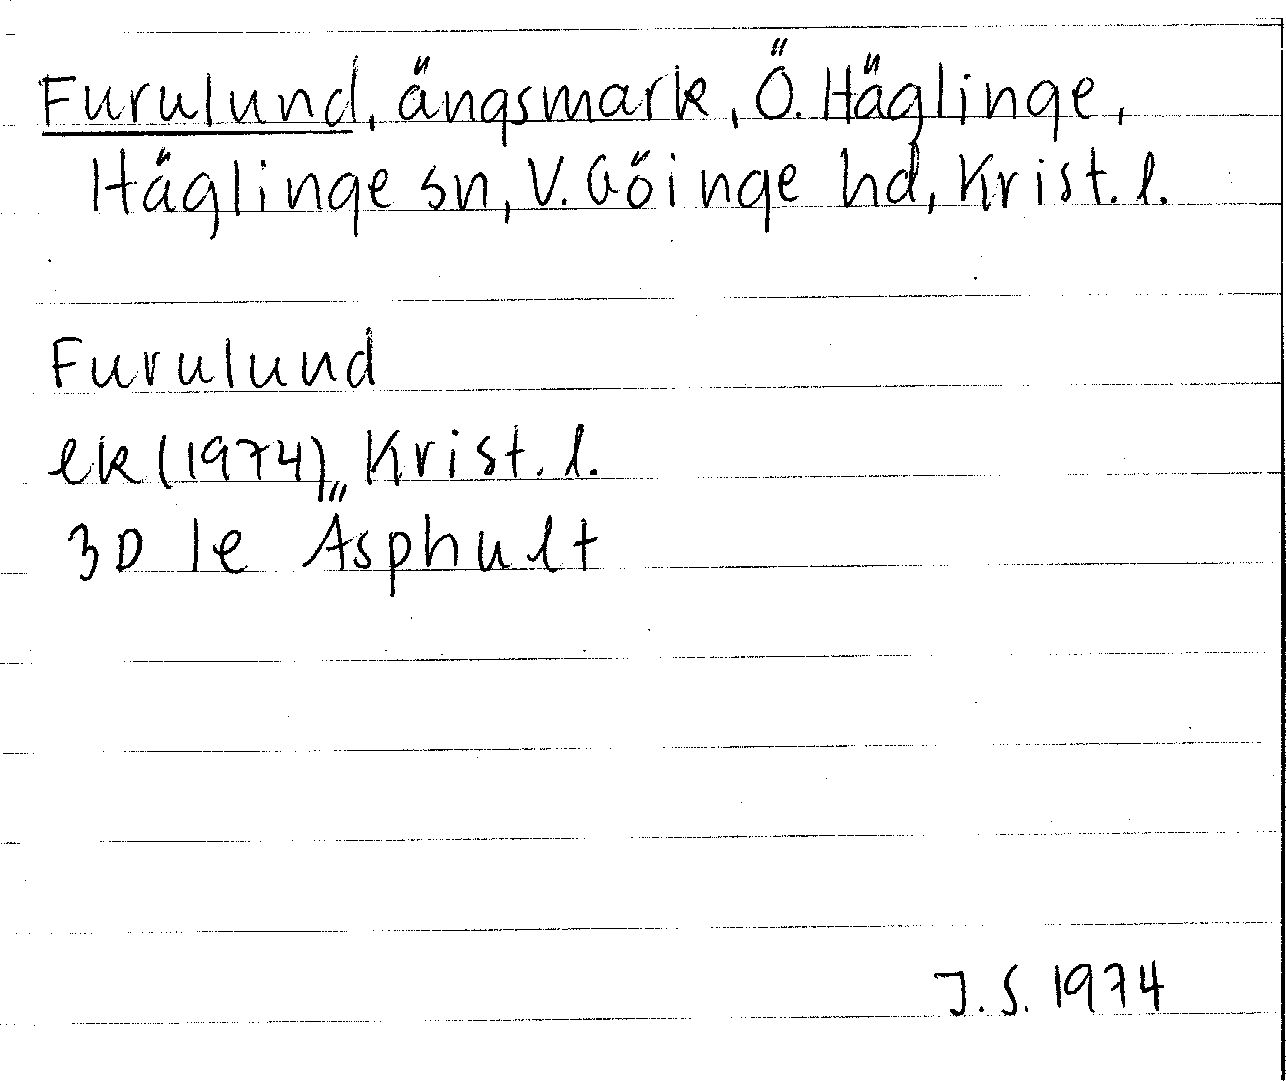 Furulund, ängsmark, Ö. Häglinge,
Häglinge sn, V. Göinge hd, Krist. l.
Furulund
ek (1974), Krist. l.
3D 1e Asphult
J.S. 1974